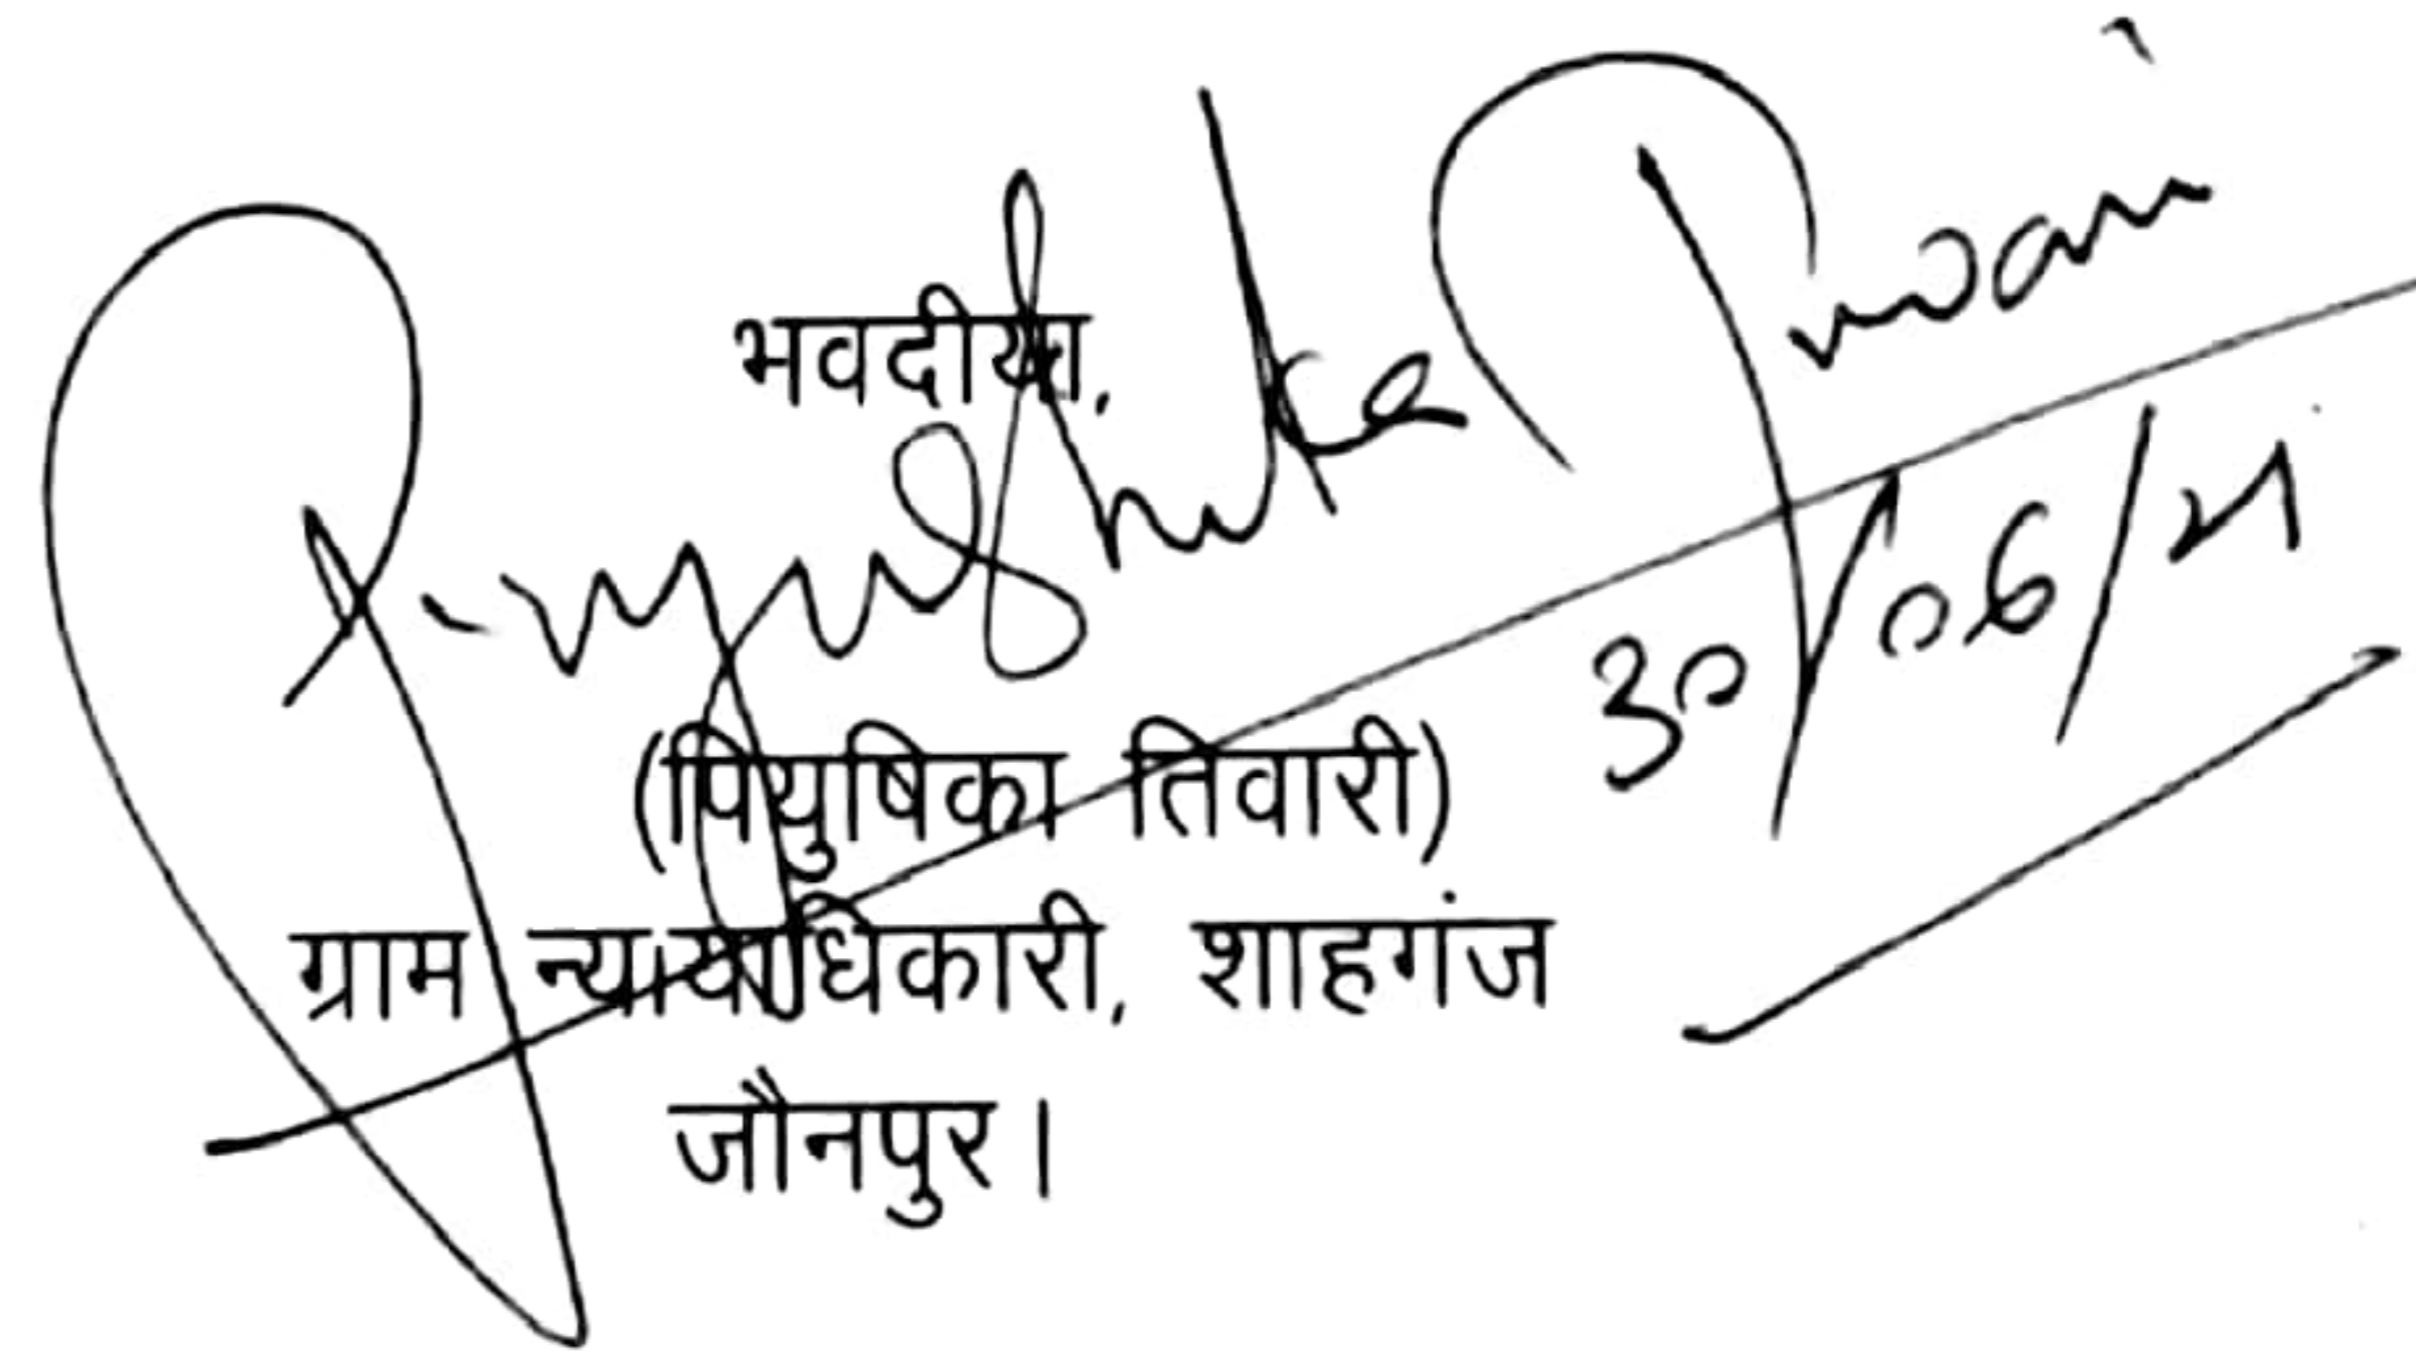 भवदीया,
Piyushika Tiwari
30/06/21
(पियुषिका तिवारी)
ग्राम न्यायाधिकारी, शाहगंज
जौनपुर।